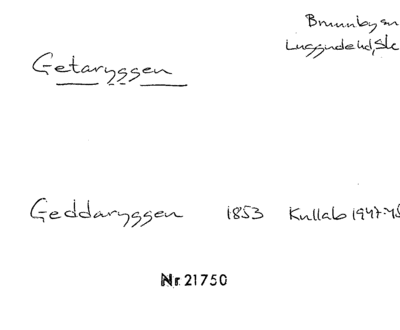 Brunnby sn
Luggude hd, Sk
Getaryggen
Geddaryggen 1853 Kullab 1947:45
Nr 21750